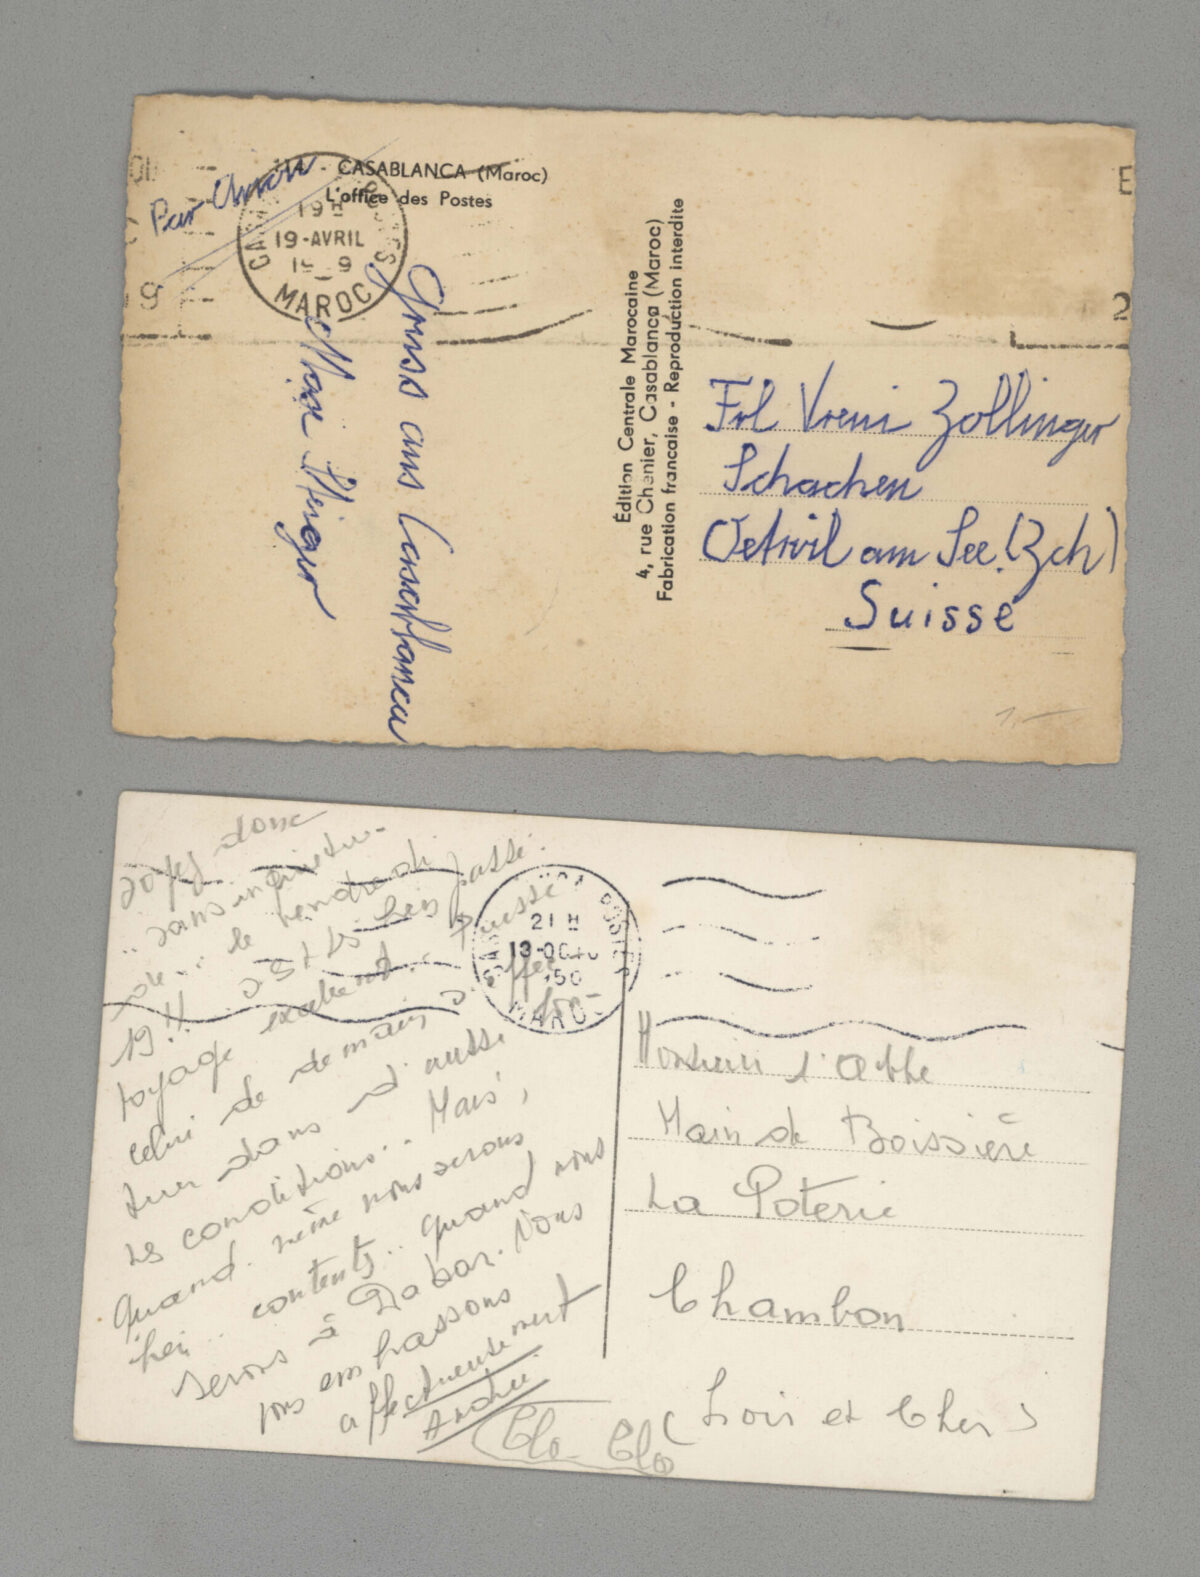 Par Avion
- CASABLANCA (Maroc)
L'office des Postes
19 H
19-AVRIL
MAROC
Gruss aus Casablanca
Max
Édition Centrale Marocaine
4, rue Chenier, Casablanca (Maroc)
Fabrication francaise - Reproduction interdite
E
2
Frl Vreni Zollinger
Schachen
Oetwil am See (Zch)
Suisse
1.-
soyez donc
sans inquiétu-
de le vendredi
19 H passé.
voyage excellent. puisse
celui de demain
dans d'aussi bon-
nes conditions. Mais,
quand même nous serons
contents.. quand nous
serons à Dakar. Nous
vous embrassons
affectueusement
André
Clo-Clo
POSTES
21 H
13-OCT
50
MAROC
Monsieur l'abbé
Main de Boissière
La Poterie
Chambon
(Loir et Cher)